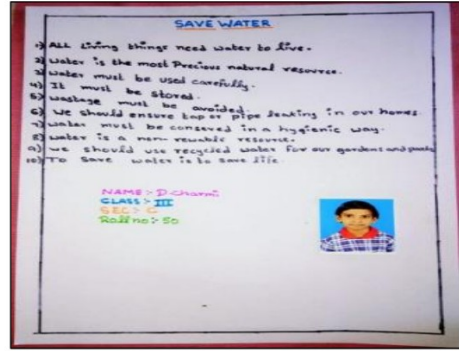 SAVE WATER
1) ALL Living things need water to live.
2) Water is the most Precious natural resource.
3) Water must be used carefully.
4) It must be stored.
5) wastage must be avoided.
6) We should ensure tap or pipe leaking in our homes.
7) water must be consered in a hygienic way.
8) water is a non-rewable resource.
9) we should use recycled water for our gardens and
10) To Save water is to save life.
NAME :- D.charmi
CLASS :- III
SEC :- C
Roll no :- 50